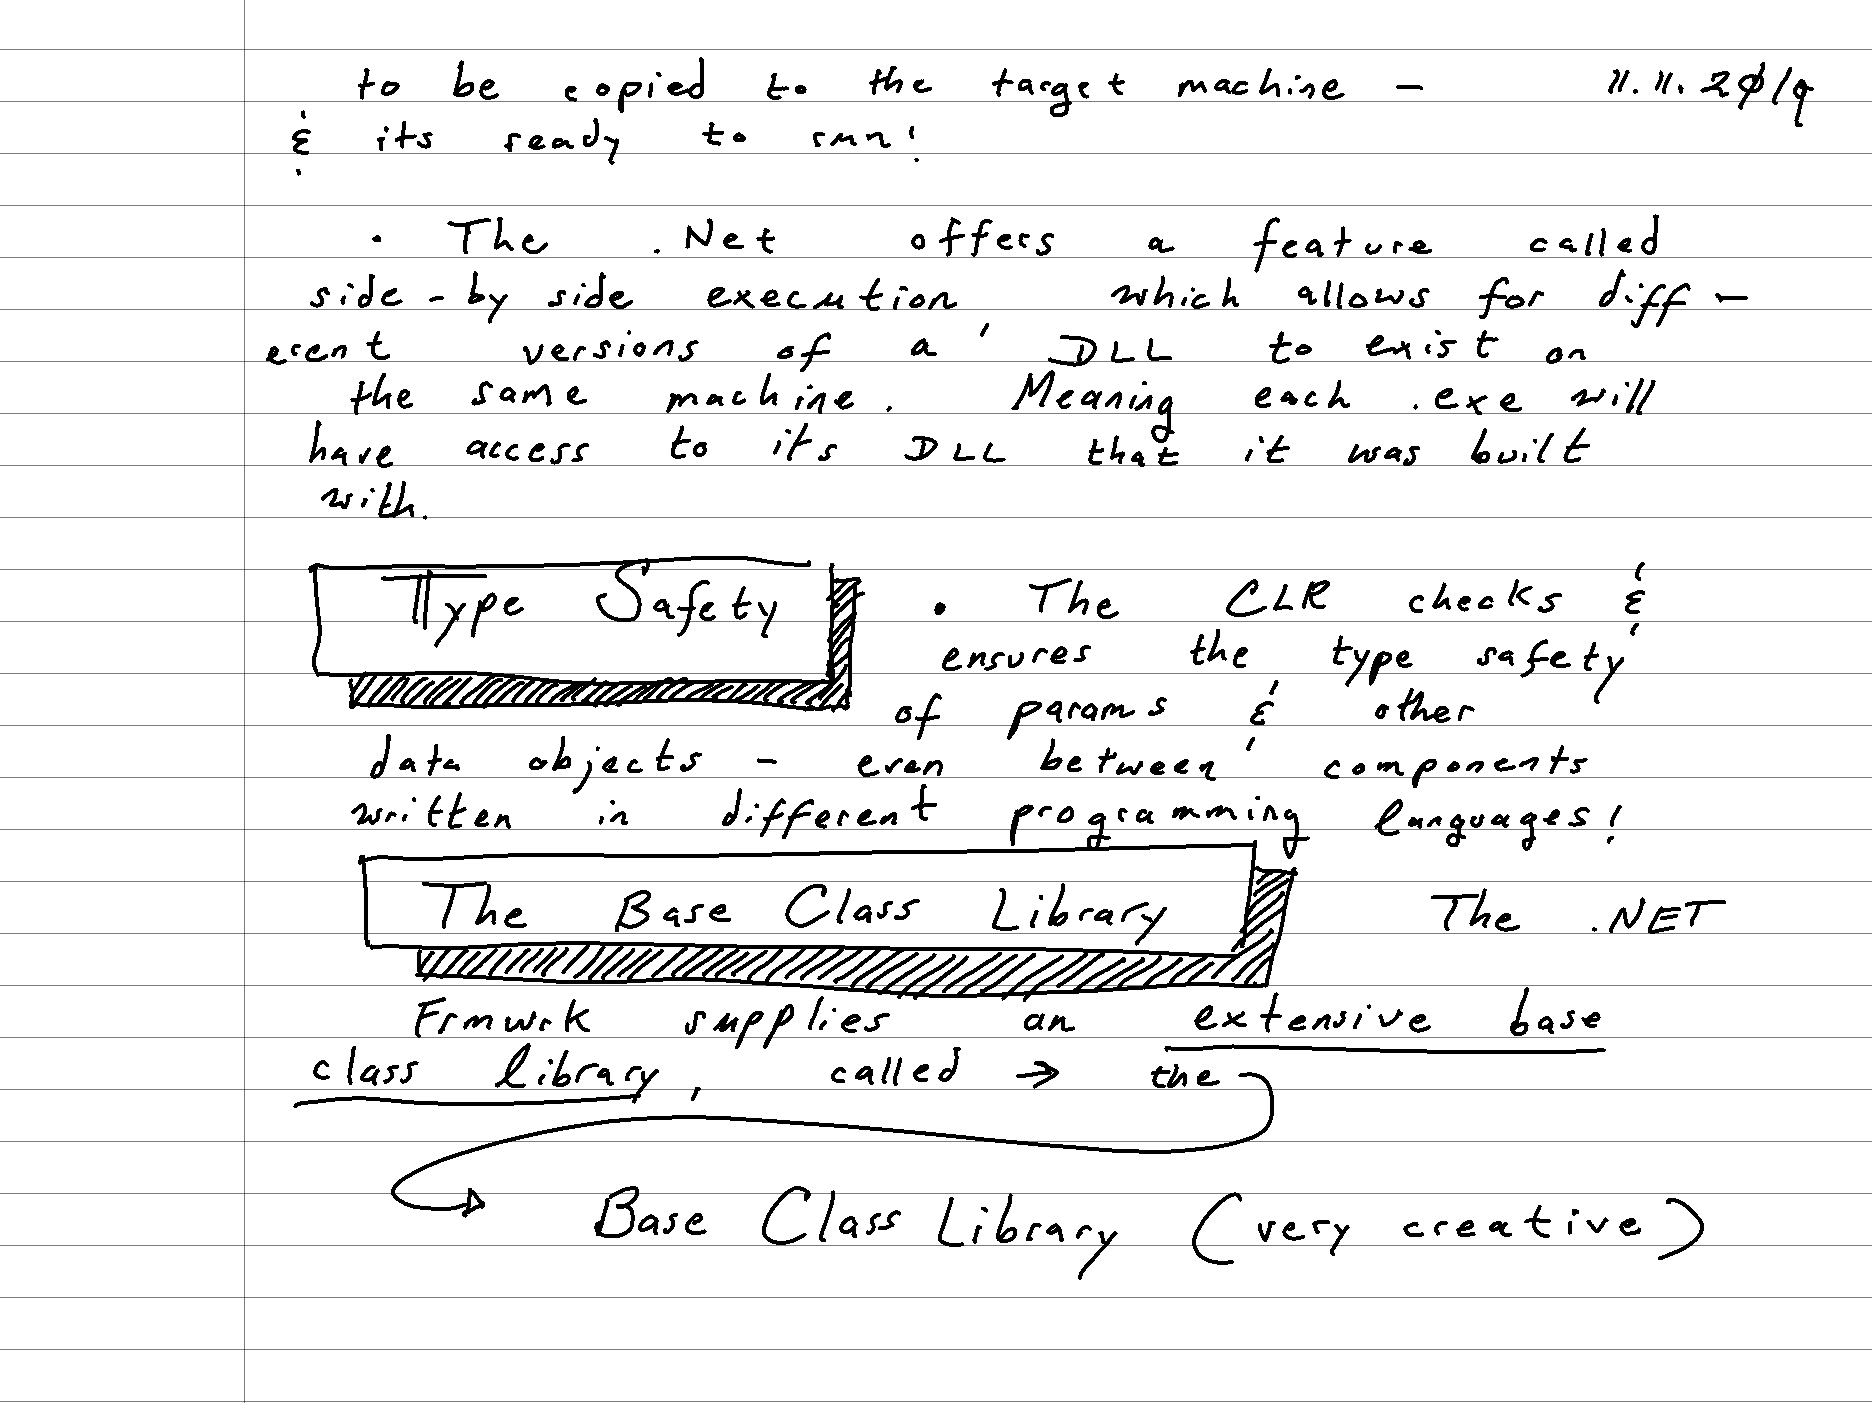 to be copied to the target machine - 11.11.2019
& its ready to run!
• The .Net offers a feature called
side-by side execution which allows for diff-
erent versions of a DLL to exist on
the same machine. Meaning each .exe will
have access to its DLL that it was built
with.
Type Safety • The CLR checks &
ensures the type safety
of params & other
data objects - even between components
written in different programming languages!
The Base Class Library The .NET
Frmwrk supplies an extensive base
class library, called → the
Base Class Library (very creative)